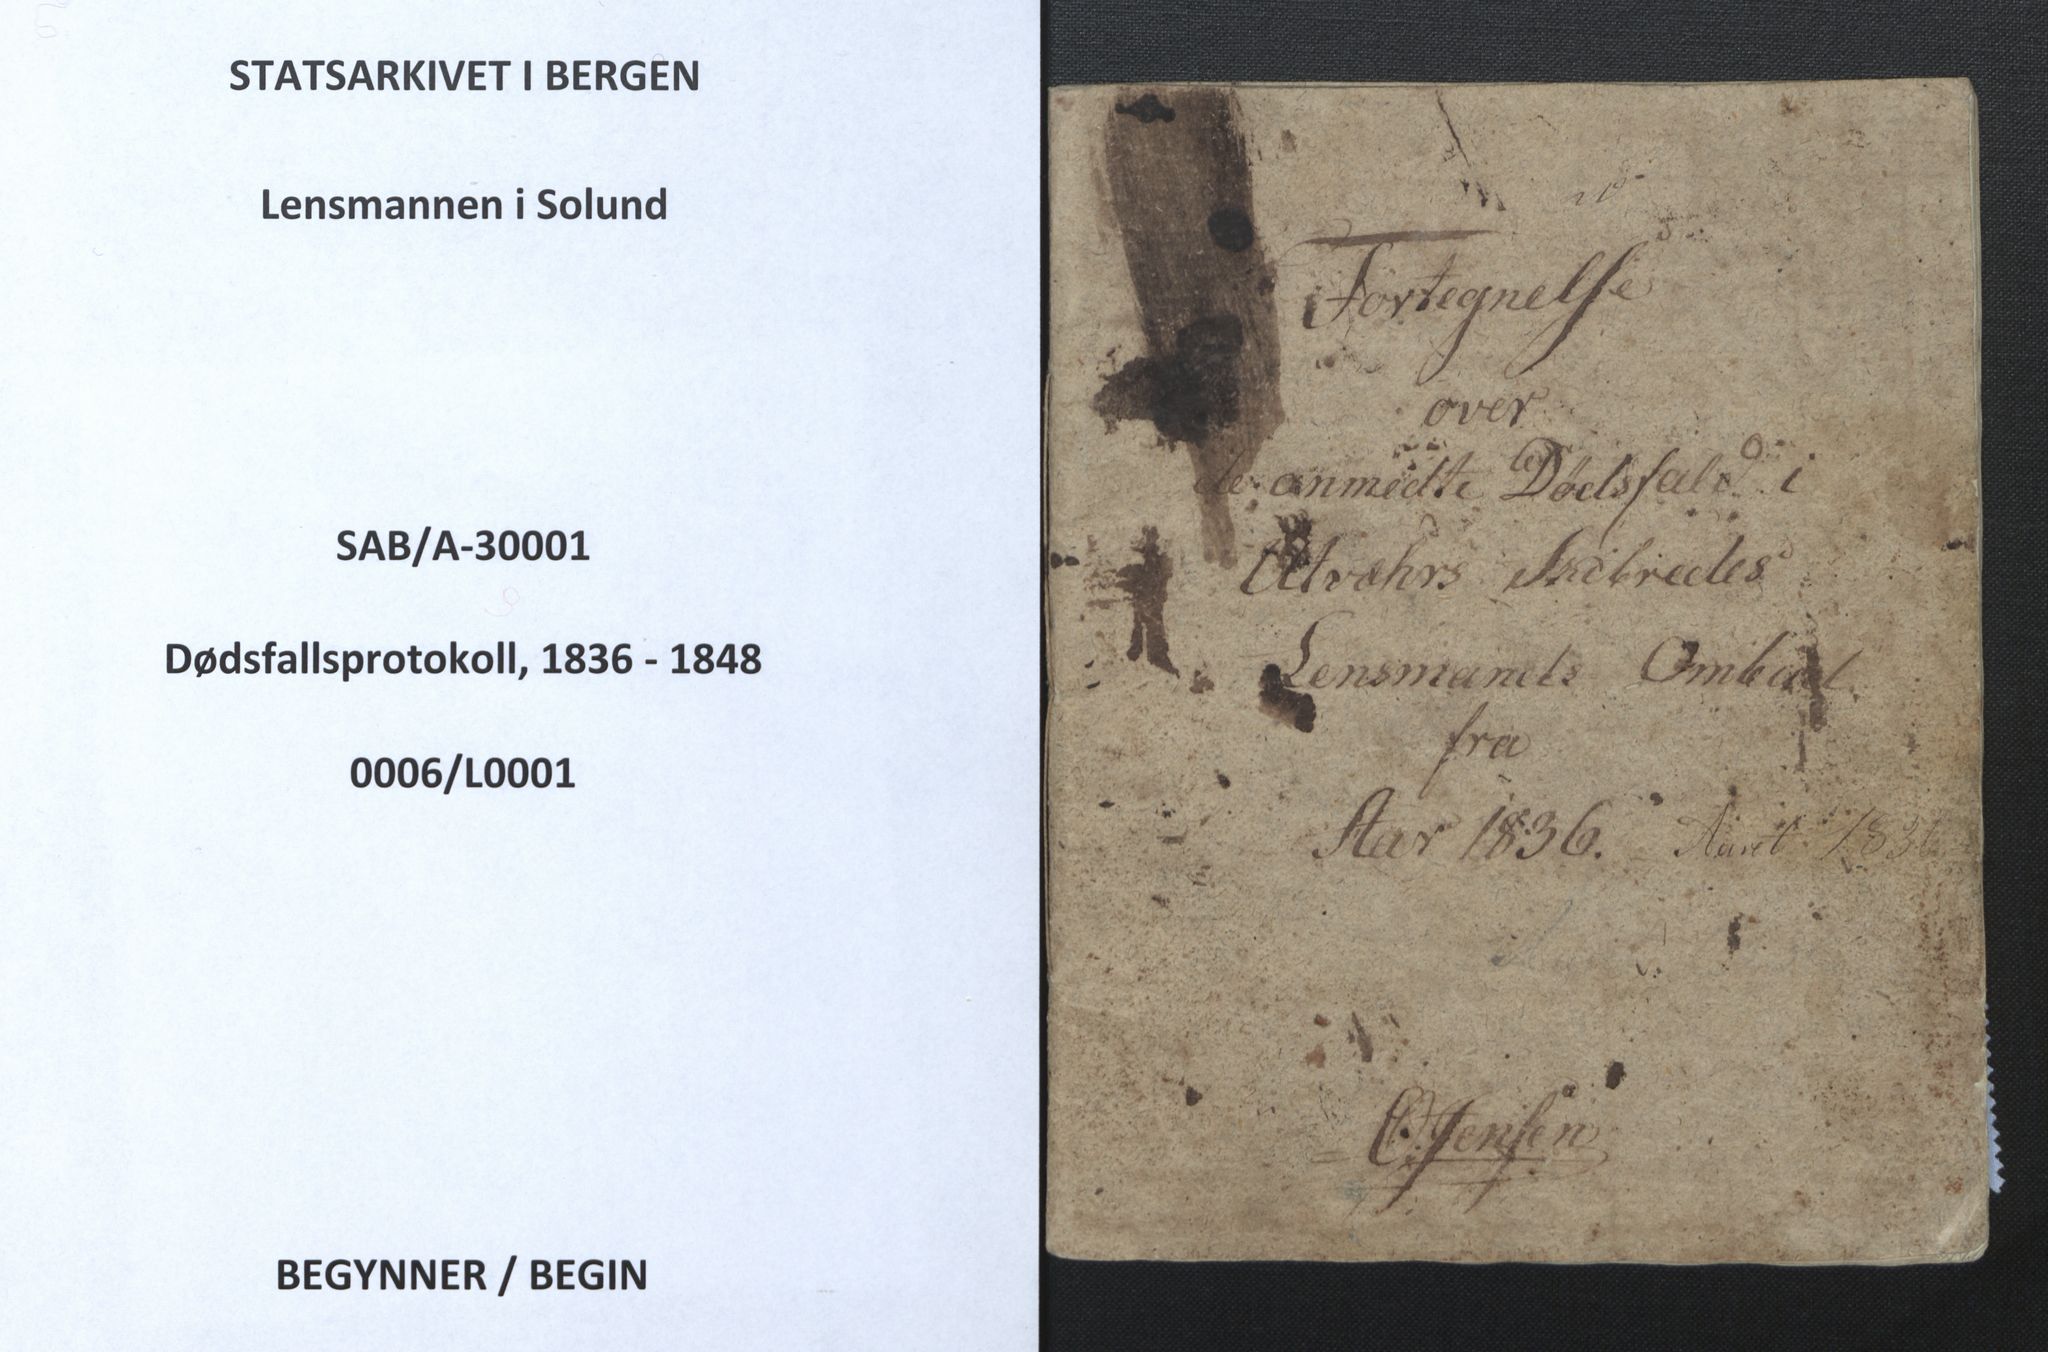 STATSARKIVET I BERGEN
Lensmannen i Solund
SAB/A-30001
Dødsfallsprotokoll, 1836 - 1848
0006/L0001
BEGYNNER / BEGIN
Fortegnelse
over
de anmedte Dødsfald i
Utvæhrs Skibredes
Lensmands Ombud
fra
Aar 1836. Aaret 1836
Jensen